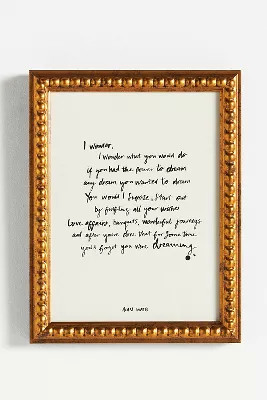 I wonder,
I wonder what you would do
if you had the power to dream
any dream you wanted to dream
You would I suppose, start out
by fulfilling all your wishes
Love affairs, banquets, wonderful journeys
and after you've done that for some time
you'd forget you were dreaming.
ALAN WATTS